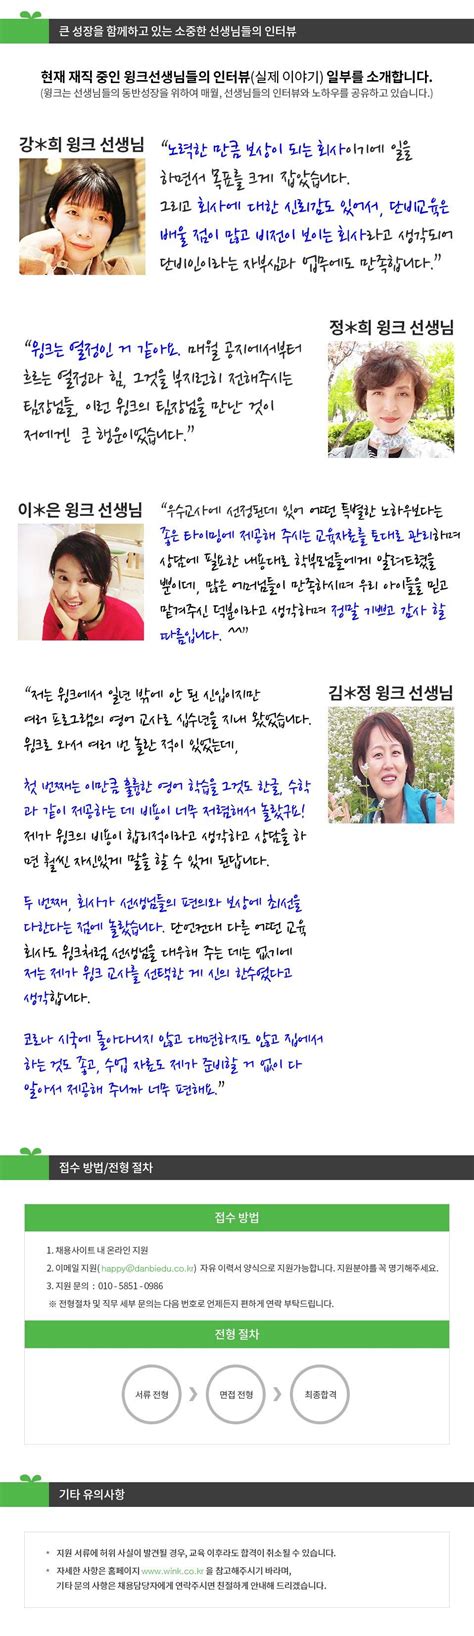 큰 성장을 함께하고 있는 소중한 선생님들의 인터뷰
현재 재직 중인 윙크선생님들의 인터뷰(실제 이야기) 일부를 소개합니다.
(윙크는 선생님들의 동반성장을 위하여 매월, 선생님들의 인터뷰와 노하우를 공유하고 있습니다.)
강*희 윙크 선생님
“노력한 만큼 보상이 되는 회사이기에 일을
하면서 목표를 크게 잡았습니다.
그리고 회사에 대한 신뢰감도 있어서, 단비교육은
배울 점이 많고 비전이 보이는 회사라고 생각되어
단비인이라는 자부심과 업무에도 만족합니다.”
정*희 윙크 선생님
“윙크는 열정인 거 같아요. 매월 공지에서부터
흐르는 열정과 힘, 그것을 부지런히 전해주시는
팀장님들, 이런 윙크의 팀장님을 만난 것이
저에겐 큰 행운이었습니다.”
이*은 윙크 선생님
“우수교사에 선정된데 있어 어떤 특별한 노하우보다는
좋은 타이밍에 제공해 주시는 교육자료를 토대로 관리하며
상담에 필요한 내용대로 학부모님들에게 알려드렸을
뿐이데, 많은 어머님들이 만족하시며 우리 아이들을 믿고
맡겨주신 덕분이라고 생각하며 정말 기쁘고 감사 할
따름입니다. ^^”
김*정 윙크 선생님
“저는 윙크에서 일년 밖에 안 된 신입이지만
여러 프로그램의 영어 교사로 십수년을 지내 왔었습니다.
윙크로 와서 여러 번 놀란 적이 있었는데,
첫 번째는 이만큼 훌륭한 영어 학습을 그것도 한글, 수학
과 같이 제공하는 데 비용이 너무 저렴해서 놀랐구요!
제가 윙크의 비용이 합리적이라고 생각하고 상담을 하
면 훨씬 자신있게 말을 할 수 있게 된답니다.
두 번째, 회사가 선생님들의 편의와 보상에 최선을
다한다는 점에 놀랐습니다. 단언컨대 다른 어떤 교육
회사도 윙크처럼 선생님을 대우해 주는 데는 없기에
저는 제가 윙크 교사를 선택한 게 신의 한수였다고
생각합니다.
코로나 시국에 돌아다니지 않고 대면하지도 않고 집에서
하는 것도 좋고, 수업 자료도 제가 준비할 거 없이 다
알아서 제공해 주니까 너무 편해요.”
접수 방법/전형 절차
접수 방법
1. 채용사이트 내 온라인 지원
2. 이메일 지원( happy@danbiedu.co.kr) 자유 이력서 양식으로 지원가능합니다. 지원분야를 꼭 명기해주세요.
3. 지원 문의 : 010 - 5851 - 0986
※ 전형절차 및 직무 세부 문의는 다음 번호로 언제든지 편하게 연락 부탁드립니다.
전형 절차
서류 전형 > 면접 전형 > 최종합격
기타 유의사항
• 지원 서류에 허위 사실이 발견될 경우, 교육 이후라도 합격이 취소될 수 있습니다.
• 자세한 사항은 홈페이지 www.wink.co.kr 을 참고해주시기 바라며,
기타 문의 사항은 채용담당자에게 연락주시면 친절하게 안내해 드리겠습니다.